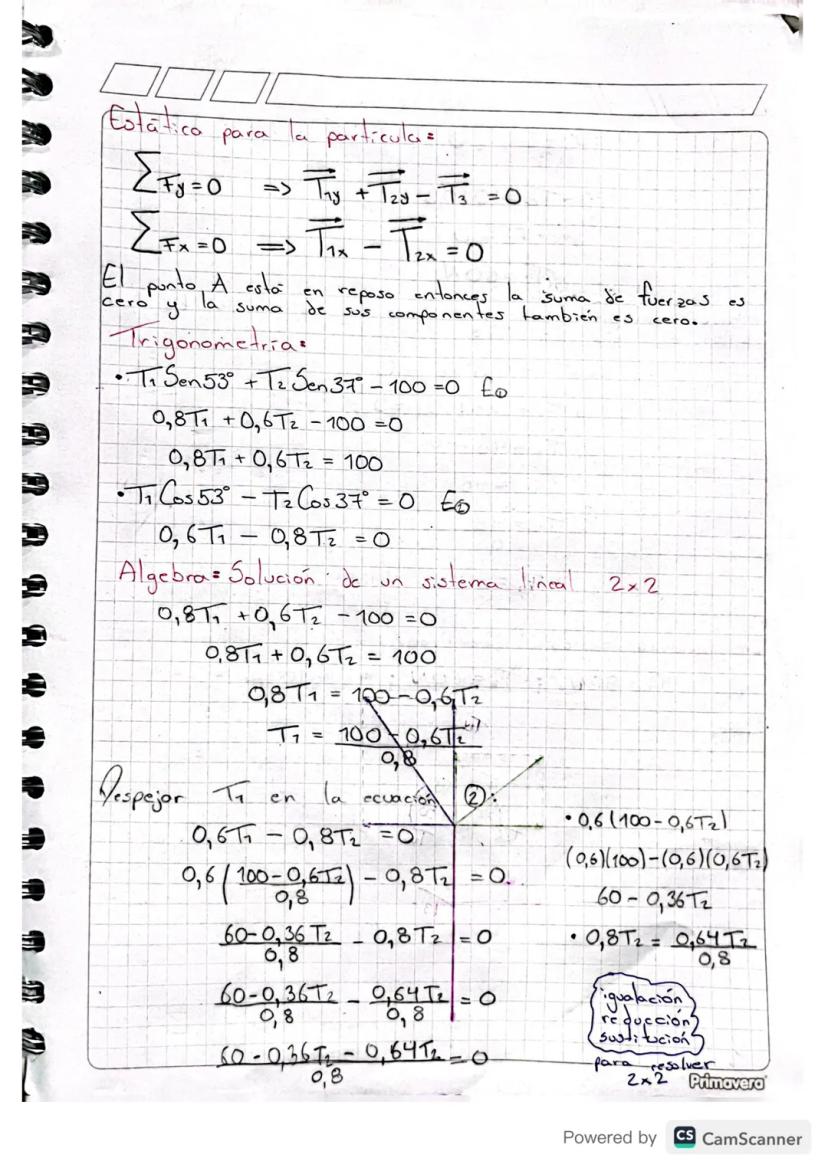 Estática para la partícula:
∑Fy=0 => T1y + T2y - T3 = 0
∑Fx=0 => T1x - T2x = 0
El punto A está en reposo entonces la suma de fuerzas es
cero y la suma de sus componentes también es cero.
Trigonometría:
• T1 Sen53° + T2 Sen37° - 100 = 0 E①
0,8T1 + 0,6T2 - 100 = 0
0,8T1 + 0,6T2 = 100
• T1 Cos53° - T2 Cos37° = 0
0,6T1 - 0,8T2 = 0
Algebra: Solución de un sistema lineal 2x2
0,8T1 + 0,6T2 - 100 = 0
0,8T1 + 0,6T2 = 100
0,8T1 = 100 - 0,6T2
T1 = 100 - 0,6T2
0,8
Despejar T1 en la ecuación ②:
0,6T1 - 0,8T2 = 0
0,6(100-0,6T2 / 0,8) - 0,8T2 = 0
60-0,36T2 / 0,8 - 0,8T2 = 0
60-0,36T2 / 0,8 - 0,64T2 / 0,8 = 0
60-0,36T2 - 0,64T2 / 0,8 = 0
• 0,6(100-0,6T2)
(0,6)(100)-(0,6)(0,6T2)
60 - 0,36T2
• 0,8T2 = 0,64T2 / 0,8
igualación
reducción
sustitución
para resolver
2x2
Primavera
Powered by CS CamScanner